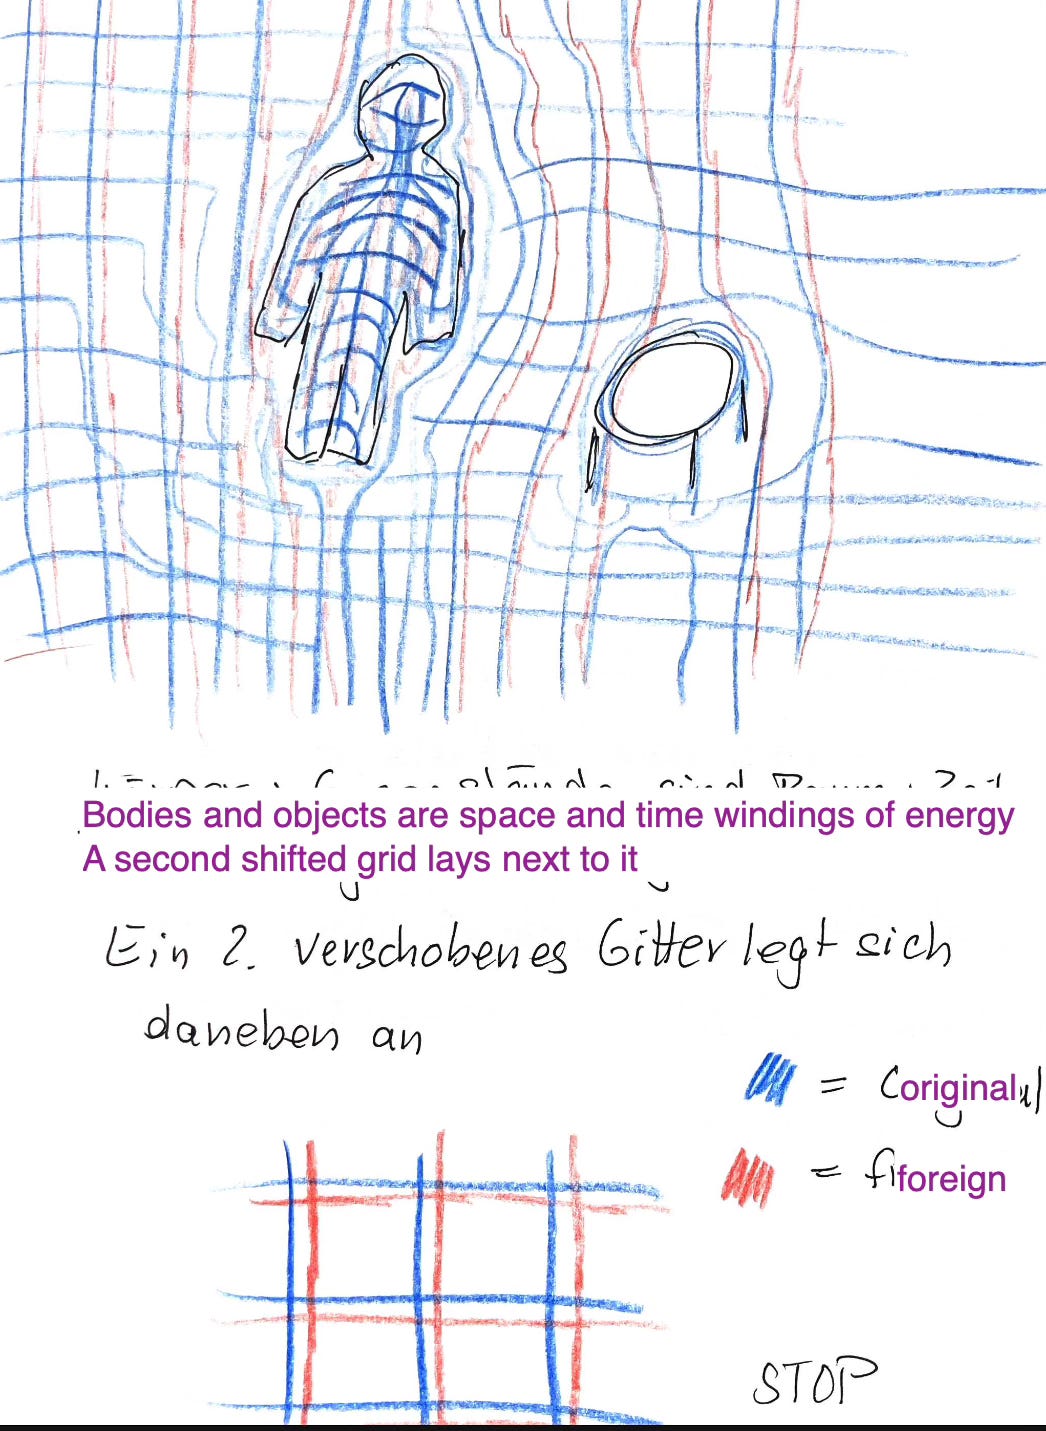 Bodies and objects are space and time windings of energy
A second shifted grid lays next to it
Ein 2. verschobenes Gitter legt sich
daneben an
= original
= foreign
STOP